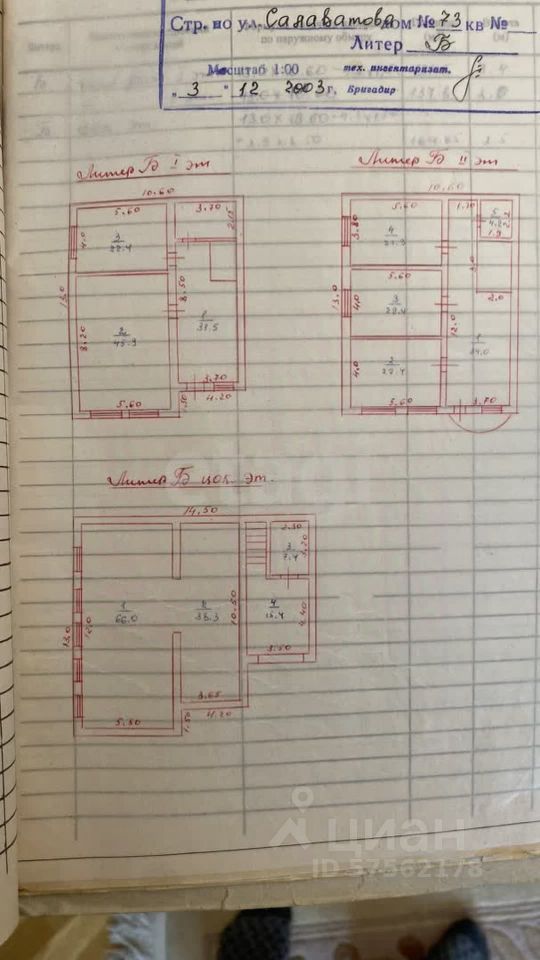 Стр. по ул. Салаватова дом № 73 кв №
Литер Б
Масштаб 1:00 тех. инвентаризат.
"3" 12 2003 г. Бригадир
Литер Б I эт
Литер Б II эт
10.60
10.60
5.60 3.70
5.60 1.70 5
3 22.4
4.0
4 21.3
3.80
5.60
13.0
8.50
13.0
4.0
3
12.0
2.0
8.20
2 45.3
1
5.60
4.0
2 22.4
1 34.0
3.70
5.60 1.50 4.20
5.60 3.70
Литер Б цок. эт.
14.50
2.30
3 7.4
3.20
13.0
1 66.0
12.0
2
10.50
4 15.4
4.40
3.50
3.65
5.50
1.50
4.20
циан
ID 57562178